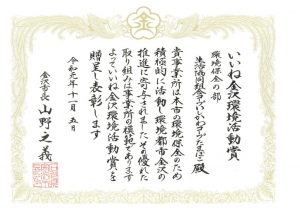 いいね金沢環境活動賞
環境保全の部
生活協同組合コープいしかわコープたまぼこ殿
貴事業所は本市の環境保全のため
積極的に活動し環境都市金沢の
推進に寄与されましたその優れた
取り組みは事業所の模範であります
よっていいね金沢環境活動賞を
贈呈し表彰します
令和元年十一月五日
金沢市長 山野之義